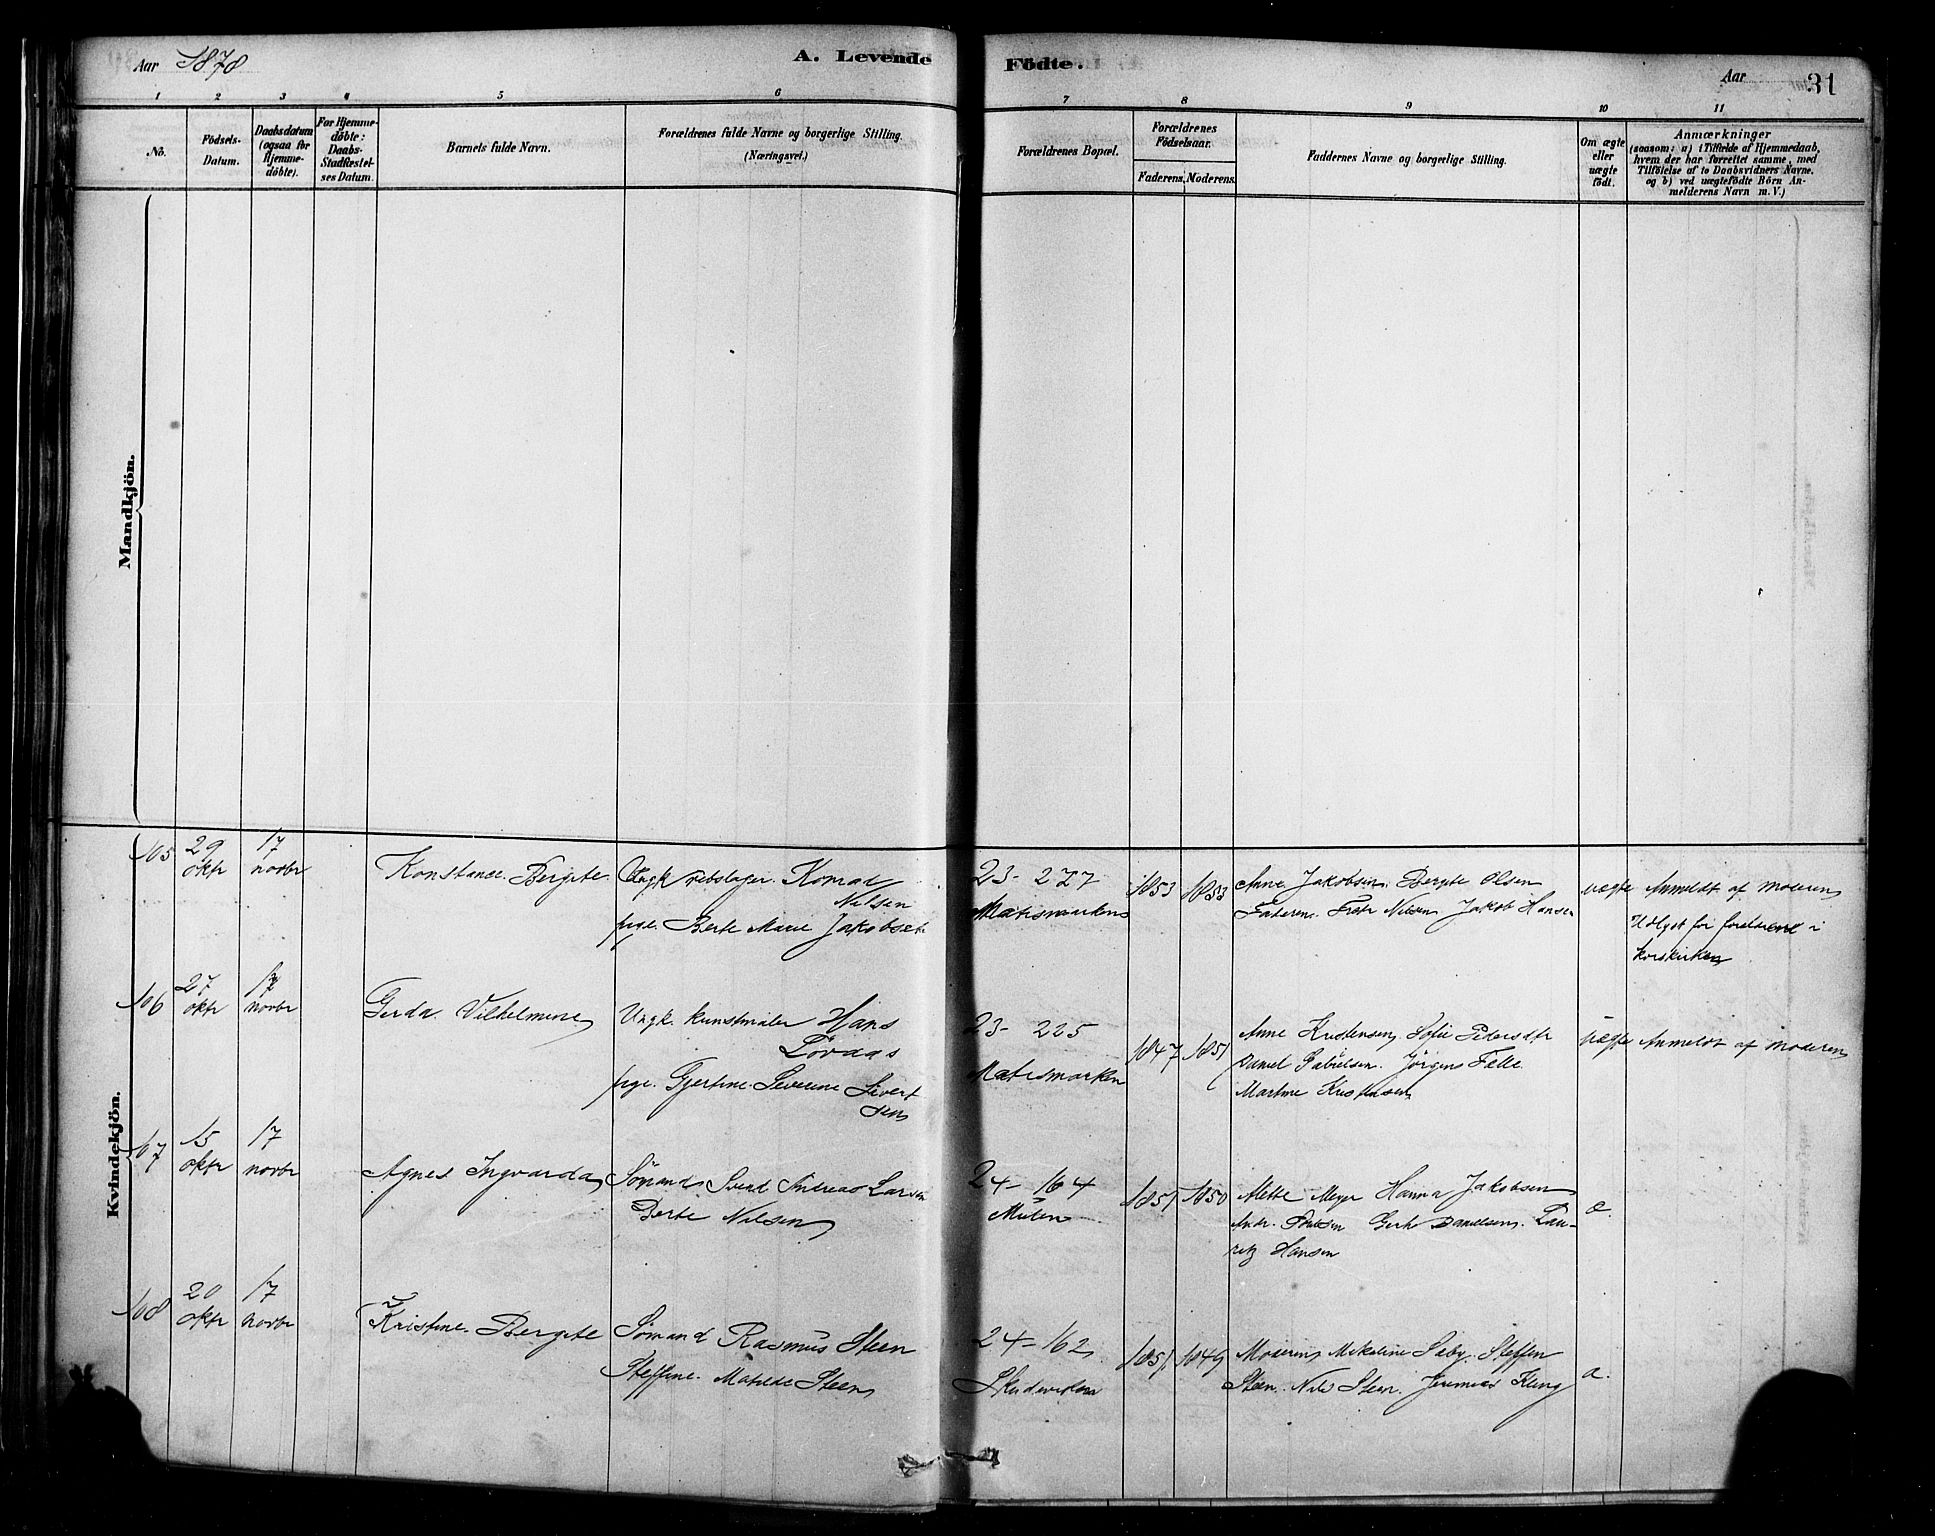 Aar 1878
A. Levende Födte.
Aar
31
1 2 3 4 5 6 7 8 9 10 11
No.
Födsels-
Datum.
Daabsdatum
(ogsaa for
Hjemme-
döbte).
For Hjemme-
döbte:
Daabs-
Stadfæstel-
ses Datum.
Barnets fulde Navn.
Forældrenes fulde Navne og borgerlige Stilling.
(Næringsvei.)
Forældrenes Bopæl.
Forældrenes
Födselsaar.
Faderens. Moderens.
Faddernes Navne og borgerlige Stilling.
Om ægte
eller
uægte
födt.
Anmærkninger
(saasom: a) i Tilfælde af Hjemmedaab,
hvem der har forrettet samme, med
Tilföielse af to Daabsvidners Navne.
og b) ved uægtefödte Börn An-
melderens Navn m. V.)
Mandkjön.
Kvindekjön.
105
29
oktr
17
novbr
Konstance Bergite
Ungk rebslager Konrad
Nilsen
pige Berte Marie Jakobsdtr
23- 227
Matismarken
1853
1853
Anne Jakobsen Bergite Olsen
Faderen Nilsen Jakob Hansen
uægte
Anmeldt af moderen
Udlyst for forældrene i
korskirken
106
27
oktr
17
novbr
Gerda Vilhelmine
Ungk. kunstmaler Hans
Lövaas
pige Gjertine Severine Sivert
sen
23- 225
Matismarken
1847
1851
Anne Kristensen Sofie Petersdtr
Daniel Gabrielsen Jörgen Felle
Martine Kristensen
uægte
Anmeldt af moderen
107
15
oktr
17
novbr
Agnes Ingvarda
Sömand Svend Andreas Larsen
Berte Nilsen
24- 164
Mulen
1851
1850
Mette Meyer Hanna Jakobsen
Andr. Gerh Danielsen. Lau-
ritz Hansen
æ.
108
20
oktr
17
novbr
Kristine Bergite
Sömand Rasmus Steen
Steffine Matilde Steen
24-162
Skuteviken
1851
1849
Moderen Mikaline Steffen
Steen. Nils Steen. Jeremias Kling
æ.